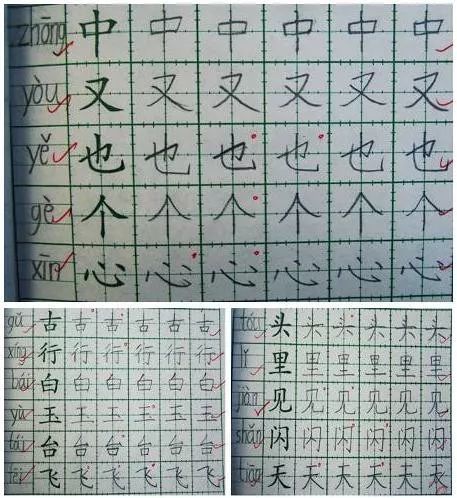 zhōng 中 中 中 中 中 中
yòu 又 又 又 又 又 又
yě 也 也 也 也 也 也
gè 个 个 个 个 个 个
xīn 心 心 心 心 心 心
gǔ 古 古 古 古 古 古
xíng 行 行 行 行 行 行
bái 白 白 白 白 白 白
yù 玉 玉 玉 玉 玉 玉
tái 台 台 台 台 台 台
fēi 飞 飞 飞 飞 飞 飞
tóu 头 头 头 头 头 头
lǐ 里 里 里 里 里 里
jiàn 见 见 见 见 见 见
shǎn 闪 闪 闪 闪 闪 闪
tiān 天 天 天 天 天 天